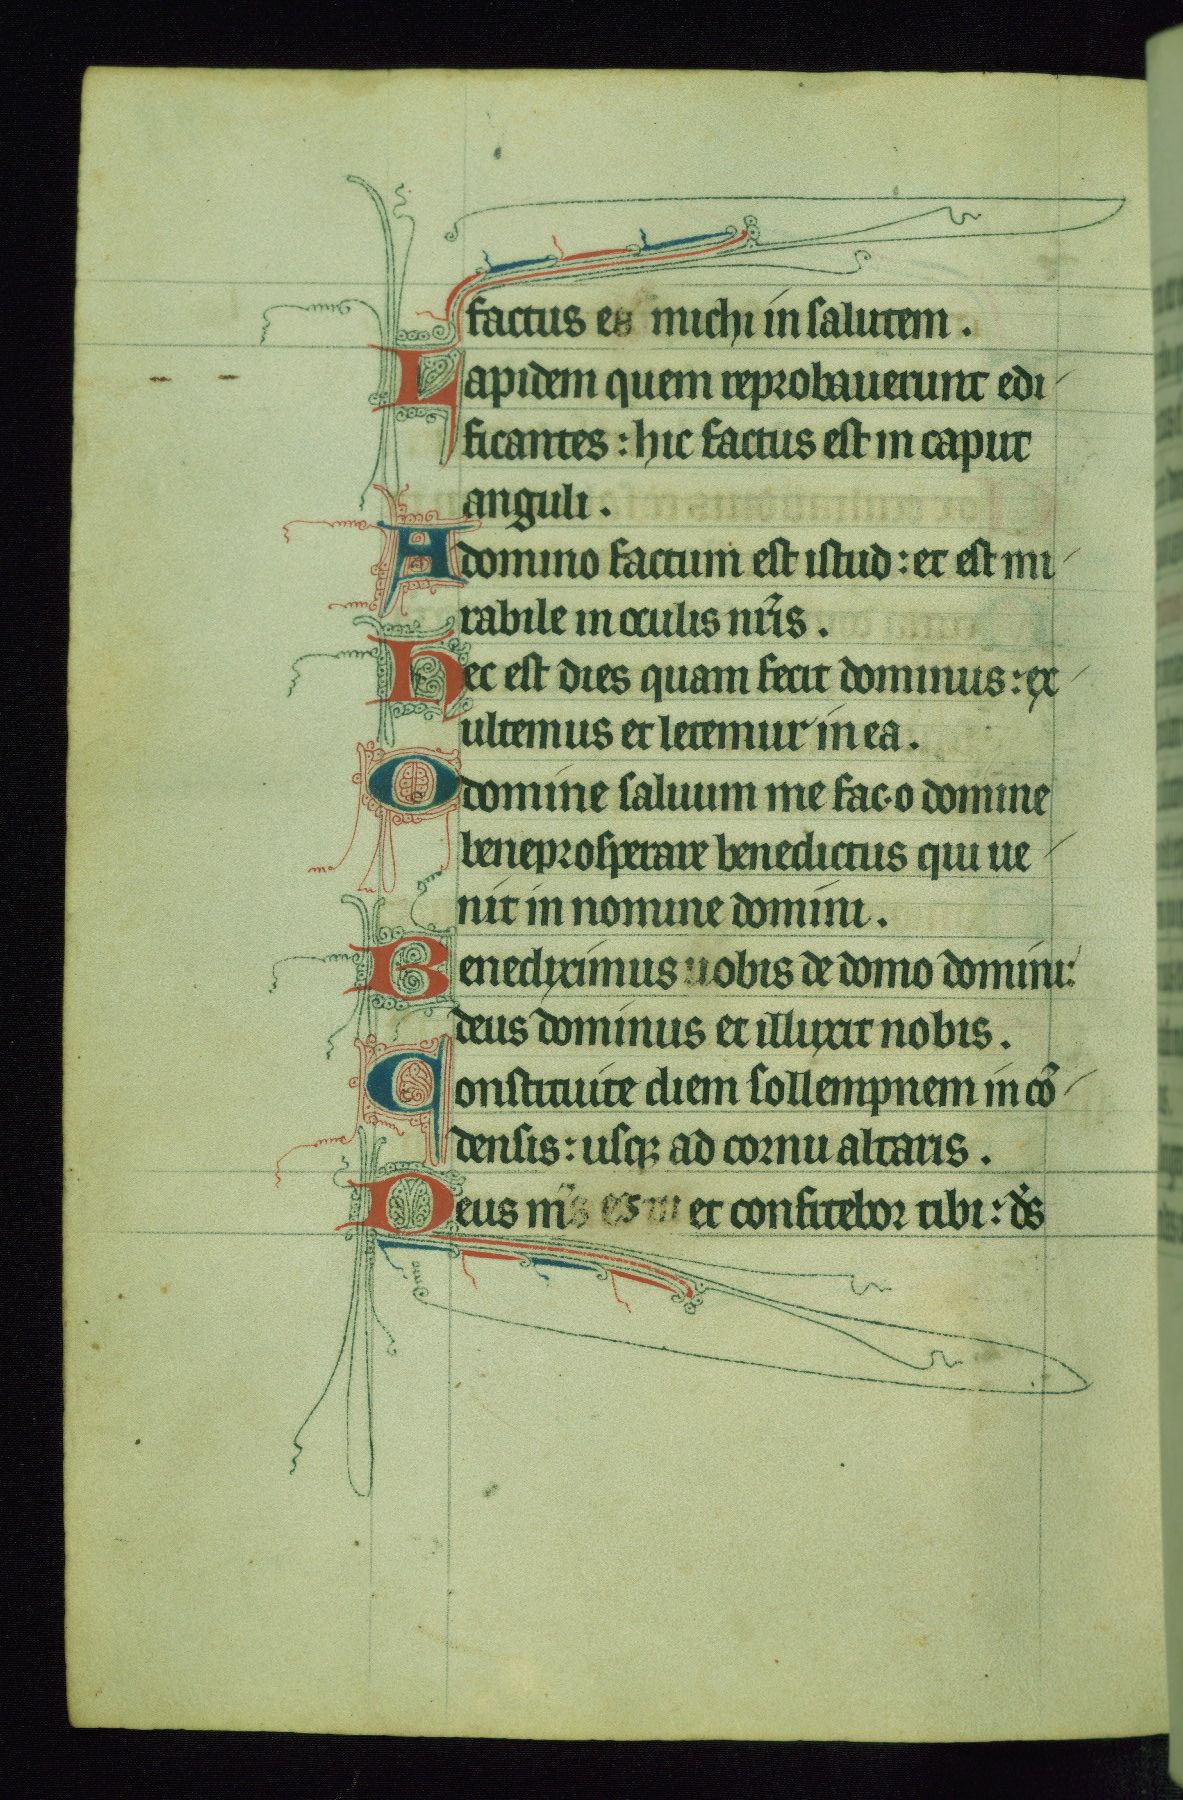 factus es michi in salutem .
Lapidem quem reprobauerunt edi
ficantes : hic factus est in caput
anguli .
A domino factum est istud : et est mi
rabile in oculis nr̃is .
Hec est dies quam fecit dominus : ex
ultemus et letemur in ea .
O domine saluum me fac · o domine
beneprosperare benedictus qui ue
nit in nomine domini .
Benediximus uobis de domo domini :
deus dominus et illuxit nobis .
Constituite diem sollempnem in cõ
densis : usqꝫ ad cornu altaris .
Deus m̃s es tu et confitebor tibi : ds̃